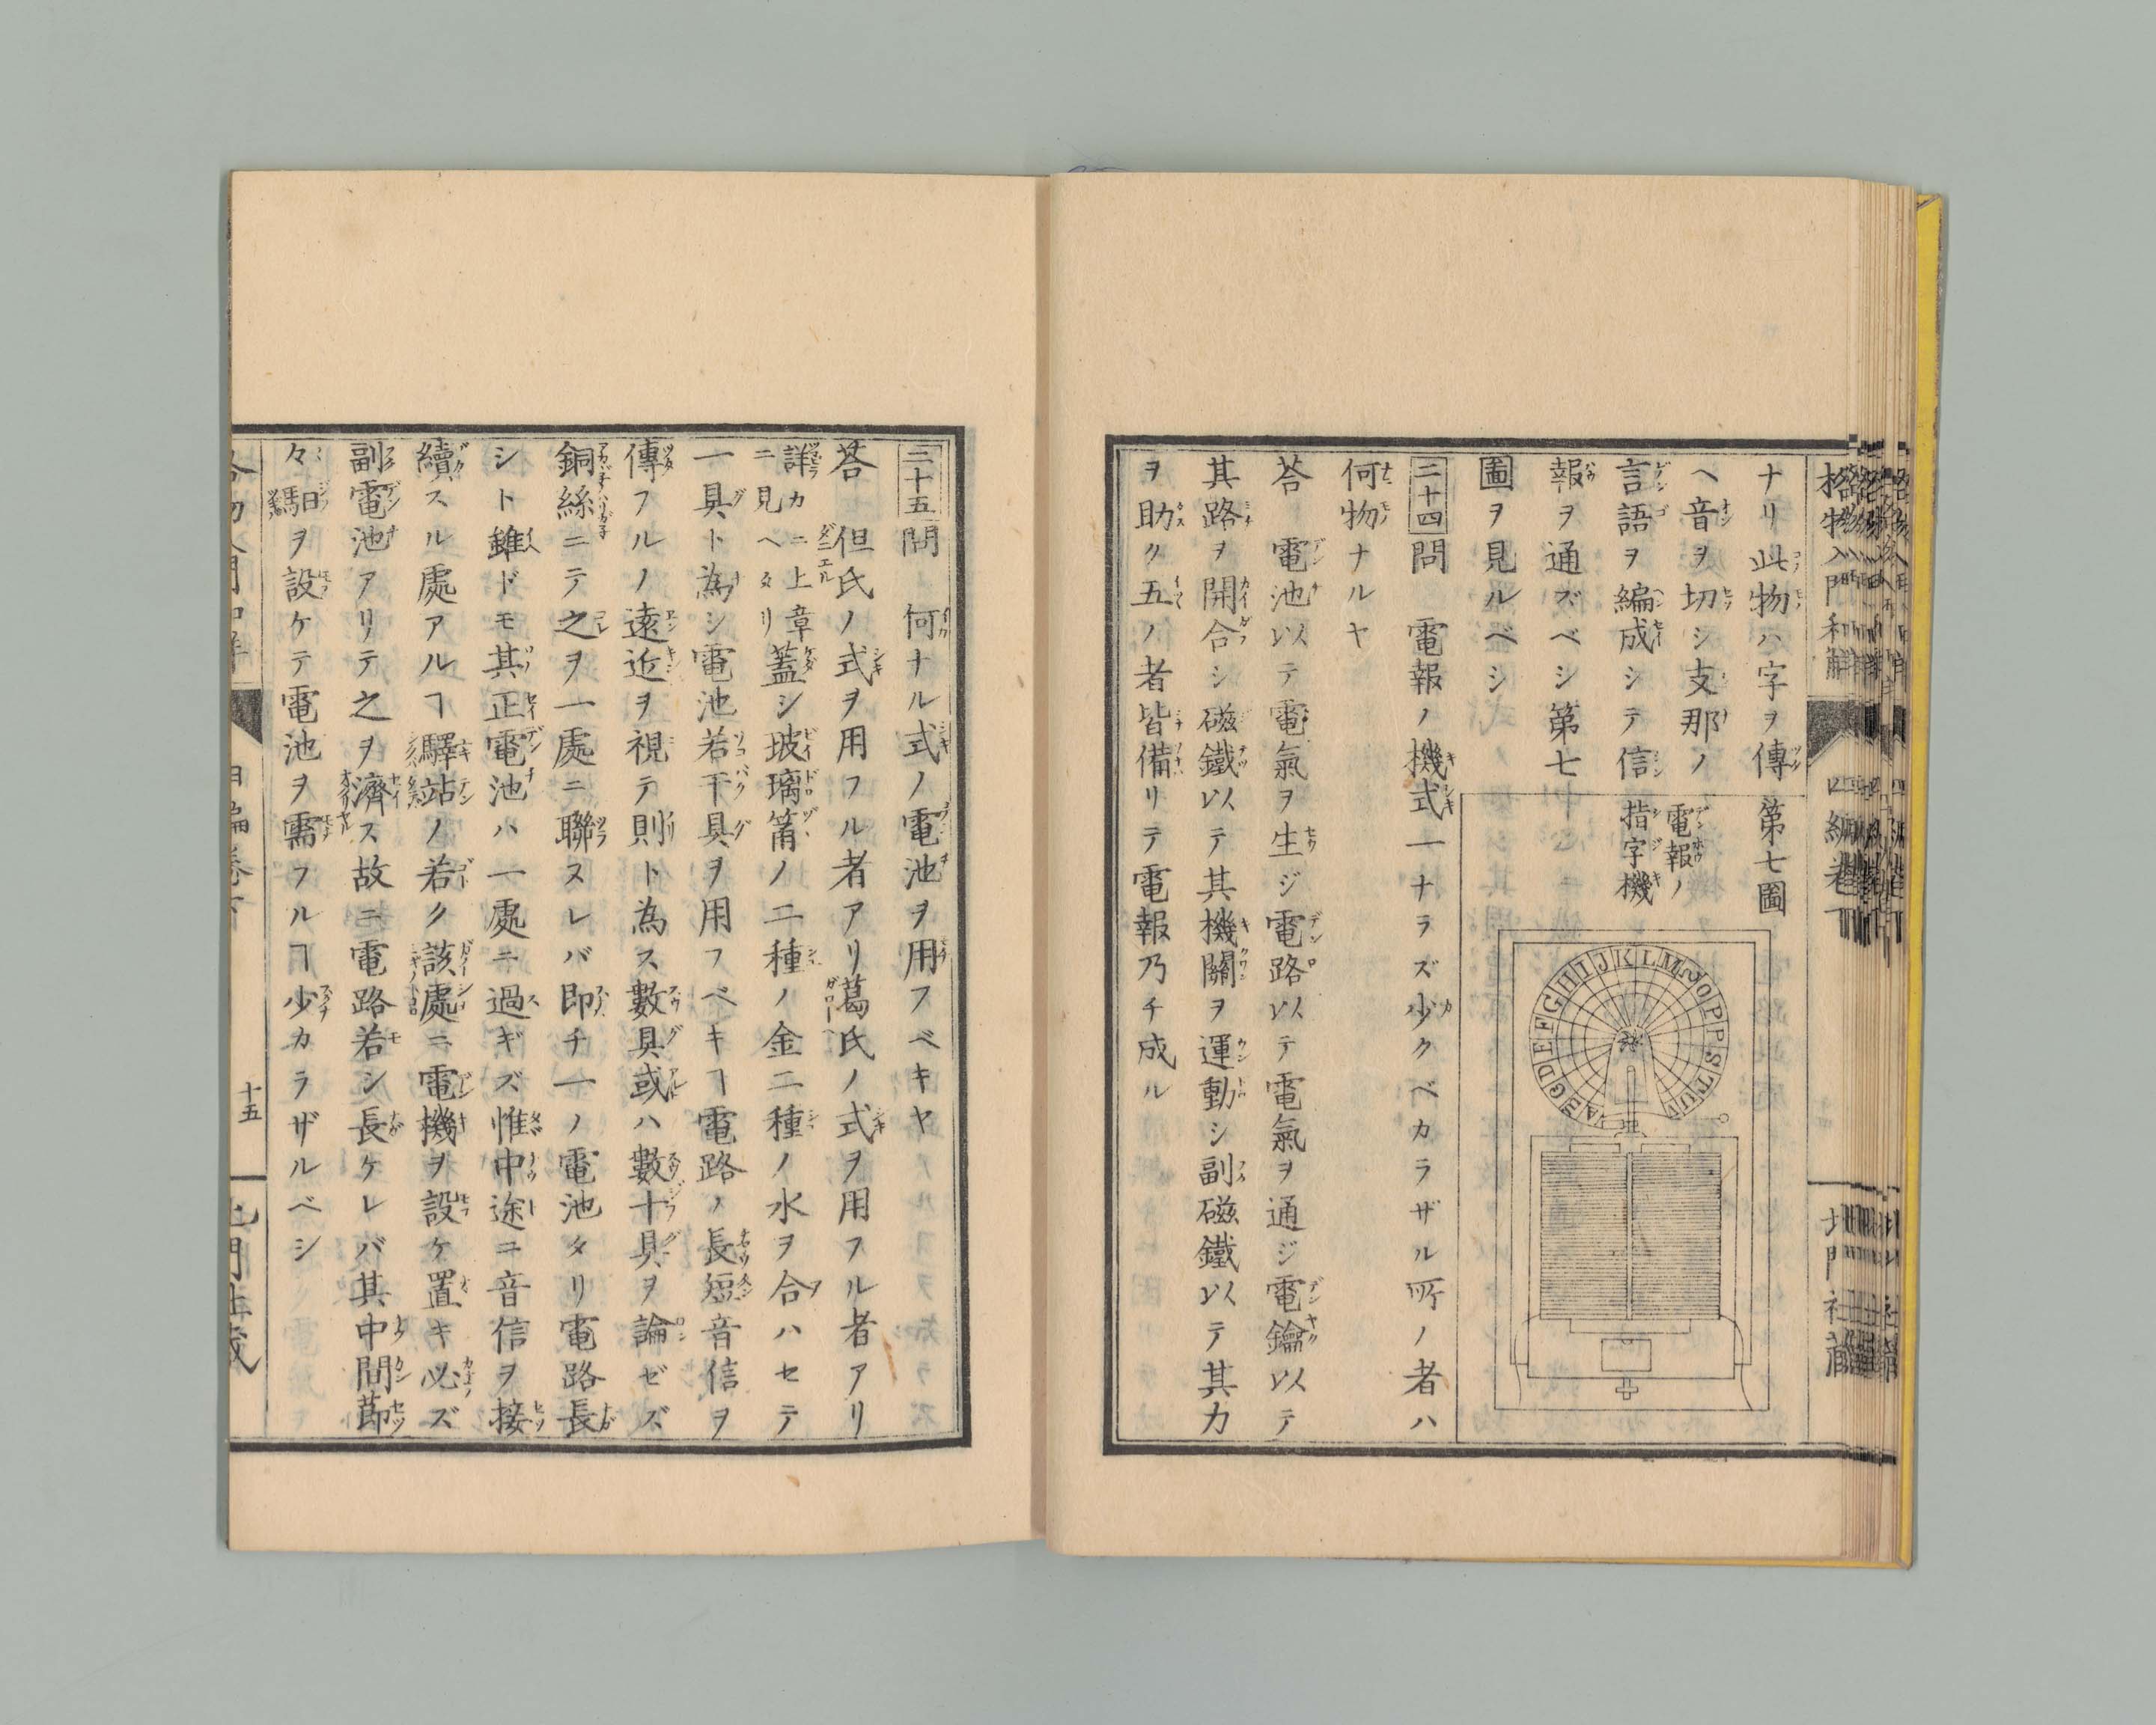 格物入門和解
四編巻下
北門社藏
ナリ此物ハ字ヲ傳
ヘ音ヲ切シ支那ノ
言語ヲ編成シテ信
報ヲ通ズベシ第七
圖ヲ見ルベシ
第七圖
電報ノ
指字機
二十四 問 電報ノ機式一ナラズ少クベカラザル所ノ者ハ
何物ナルヤ
荅 電池以テ電氣ヲ生ジ電路以テ電氣ヲ通ジ電鑰以テ
其路ヲ開合シ磁鐵以テ其機關ヲ運動シ副磁鐵以テ其力
ヲ助ク五ノ者皆備リテ電報乃チ成ル
二十五 問 何ナル式ノ電池ヲ用フベキヤ
荅 但氏ノ式ヲ用フル者アリ葛氏ノ式ヲ用フル者アリ
詳カニ上章
ニ見ヘタリ
蓋シ玻璃筩ノ二種ノ金二種ノ水ヲ合ハセテ
一具ト為シ電池若干具ヲ用フベキヿ電路ノ長短音信ヲ
傳フルノ遠近ヲ視テ則ト為ス數具或ハ數十具ヲ論ゼズ
銅絲ニテ之ヲ一處ニ聯ヌレバ即チ一ノ電池タリ電路長
シト雖ドモ其正電池ハ一處ニ過ギズ惟中途ニ音信ヲ接
續スル處アルヿ驛站ノ若ク該處ニ電機ヲ設ケ置キ必ズ
副電池アリテ之ヲ濟ス故ニ電路若シ長ケレバ其中間節
々馹ヲ設ケテ電池ヲ需フルヿ少カラザルベシ
十五